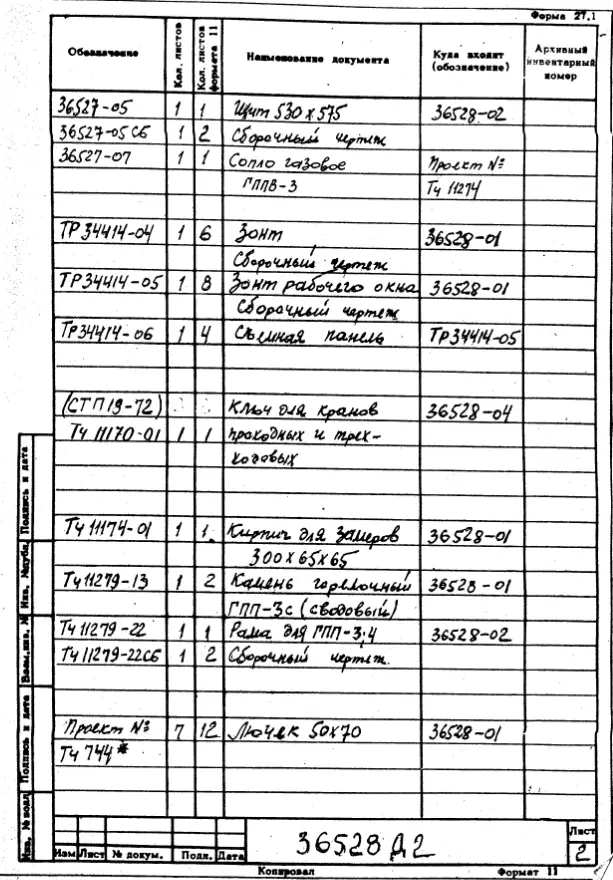 Форма 27.1
Обозначение Кол. листов Кол. листов формата 11 Наименование документа Куда входит (обозначение) Архивный инвентарный номер
36527-05 1 1 Щит 530х575 36528-02
36527-05СБ 1 2 Сборочный чертеж
36527-07 1 1 Сопло газовое Проект №
ГППВ-3 Тч 11274
ТР34414-04 1 6 Зонт 36528-01
Сборочный чертеж
ТР34414-05 1 8 Зонт рабочего окна 36528-01
Сборочный чертеж
ТР34414-06 1 4 Съемная панель ТР34414-05
(СТП19-72) Ключ для кранов 36528-04
Тч 11170-01 1 1 проходных и трех-
ходовых
Тч 11174-01 1 1 Кирпич для замеров 36528-01
300х65х65
Тч 11279-13 1 2 Камень горелочный 36528-01
ГПП-3с (сводовый)
Тч 11279-22 1 1 Рама для ГПП-3;4 36528-02
Тч 11279-22СБ 1 2 Сборочный чертеж.
Проект № 7 12 Лючек 50х70 36528-01
Тч 744*
Инв. № подл. Подпись и дата Взам. инв. № Инв. № дубл. Подпись и дата
Изм Лист № докум. Подп. Дата
36528 Д2
Лист
2
Копировал Формат 11